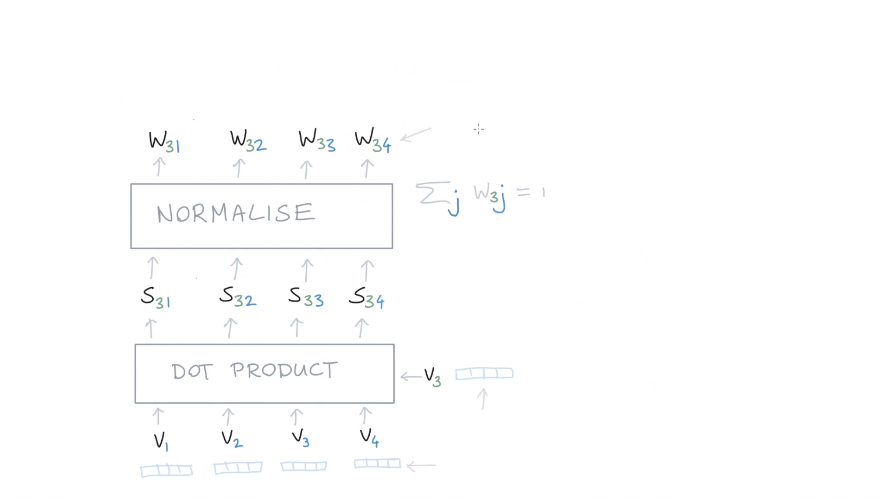 W31 W32 W33 W34
NORMALISE
∑j W3j = 1
S31 S32 S33 S34
DOT PRODUCT
V3
V1 V2 V3 V4